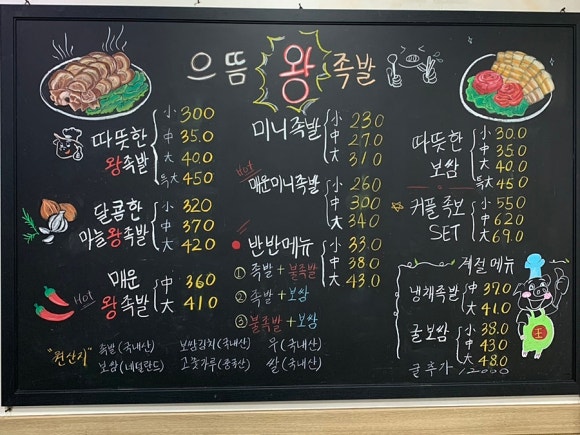 으뜸 왕 족발
따뜻한 왕족발
小 300
中 35.0
大 40.0
특大 450
달콤한 마늘왕족발
小 320
中 370
大 420
Hot
매운 왕족발
中 360
大 410
미니족발
小 230
中 270
大 310
Hot
매운미니족발
小 260
中 300
大 340
반반메뉴
小 33.0
中 38.0
大 43.0
① 족발 + 불족발
② 족발 + 보쌈
③ 불족발 + 보쌈
따뜻한 보쌈
小 30.0
中 35.0
大 40.0
특大 45.0
커플족보 SET
小 550
中 620
大 69.0
계절메뉴
냉채족발
中 370
大 41.0
굴보쌈
小 38.0
中 430
大 48.0
굴추가 12000
王
"원산지"
족발(국내산) 보쌈김치(국내산) 우(국내산)
보쌈(네덜란드) 고춧가루(중국산) 쌀(국내산)